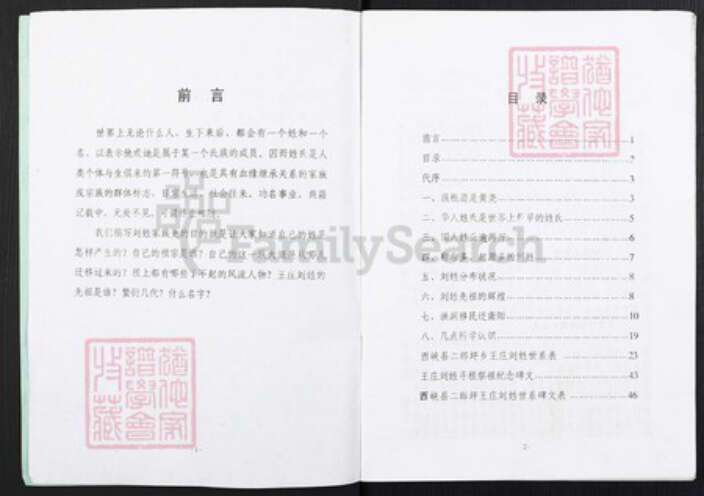 前 言
世界上无论什么人、生下来后、都会有一个姓和一个
名、以表示他或她是属于某一个氏族的成员。因而姓氏是人
类个体与生俱来的第一符号、也是具有血缘继承关系的家族
或宗族的群体标志、日常生活、社会往来、功名事业、典籍
记载中、无处不见、可谓伴生相随。
我们编写刘姓家族史的目的就是让大家知道自己的姓是
怎样产生的？自己的祖宗是谁？自己的这一族人是从哪儿
迁移过来的？祖上都有哪些了不起的风流人物？王庄刘姓的
先祖是谁？繁衍几代？什么名字？
1
目 录
前言 1
目录 2
代序 3
一、我
二、华人姓氏是世界上
三、
四、 7
五、刘姓分布状况 8
六、刘姓先祖的辉煌 8
七、洪洞移民迁豫 10
八、几点科学认识 19
西峡县二郎坪乡王庄刘姓世系表 23
王庄刘姓寻根祭祖纪念碑文 43
西峡县二郎坪王庄刘姓世系碑文表 46
2
FamilySearch